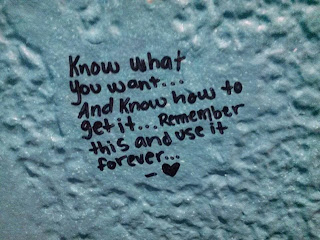 Know what
you want...
And Know how to
get it... Remember
this and use it
forever...
- ♥